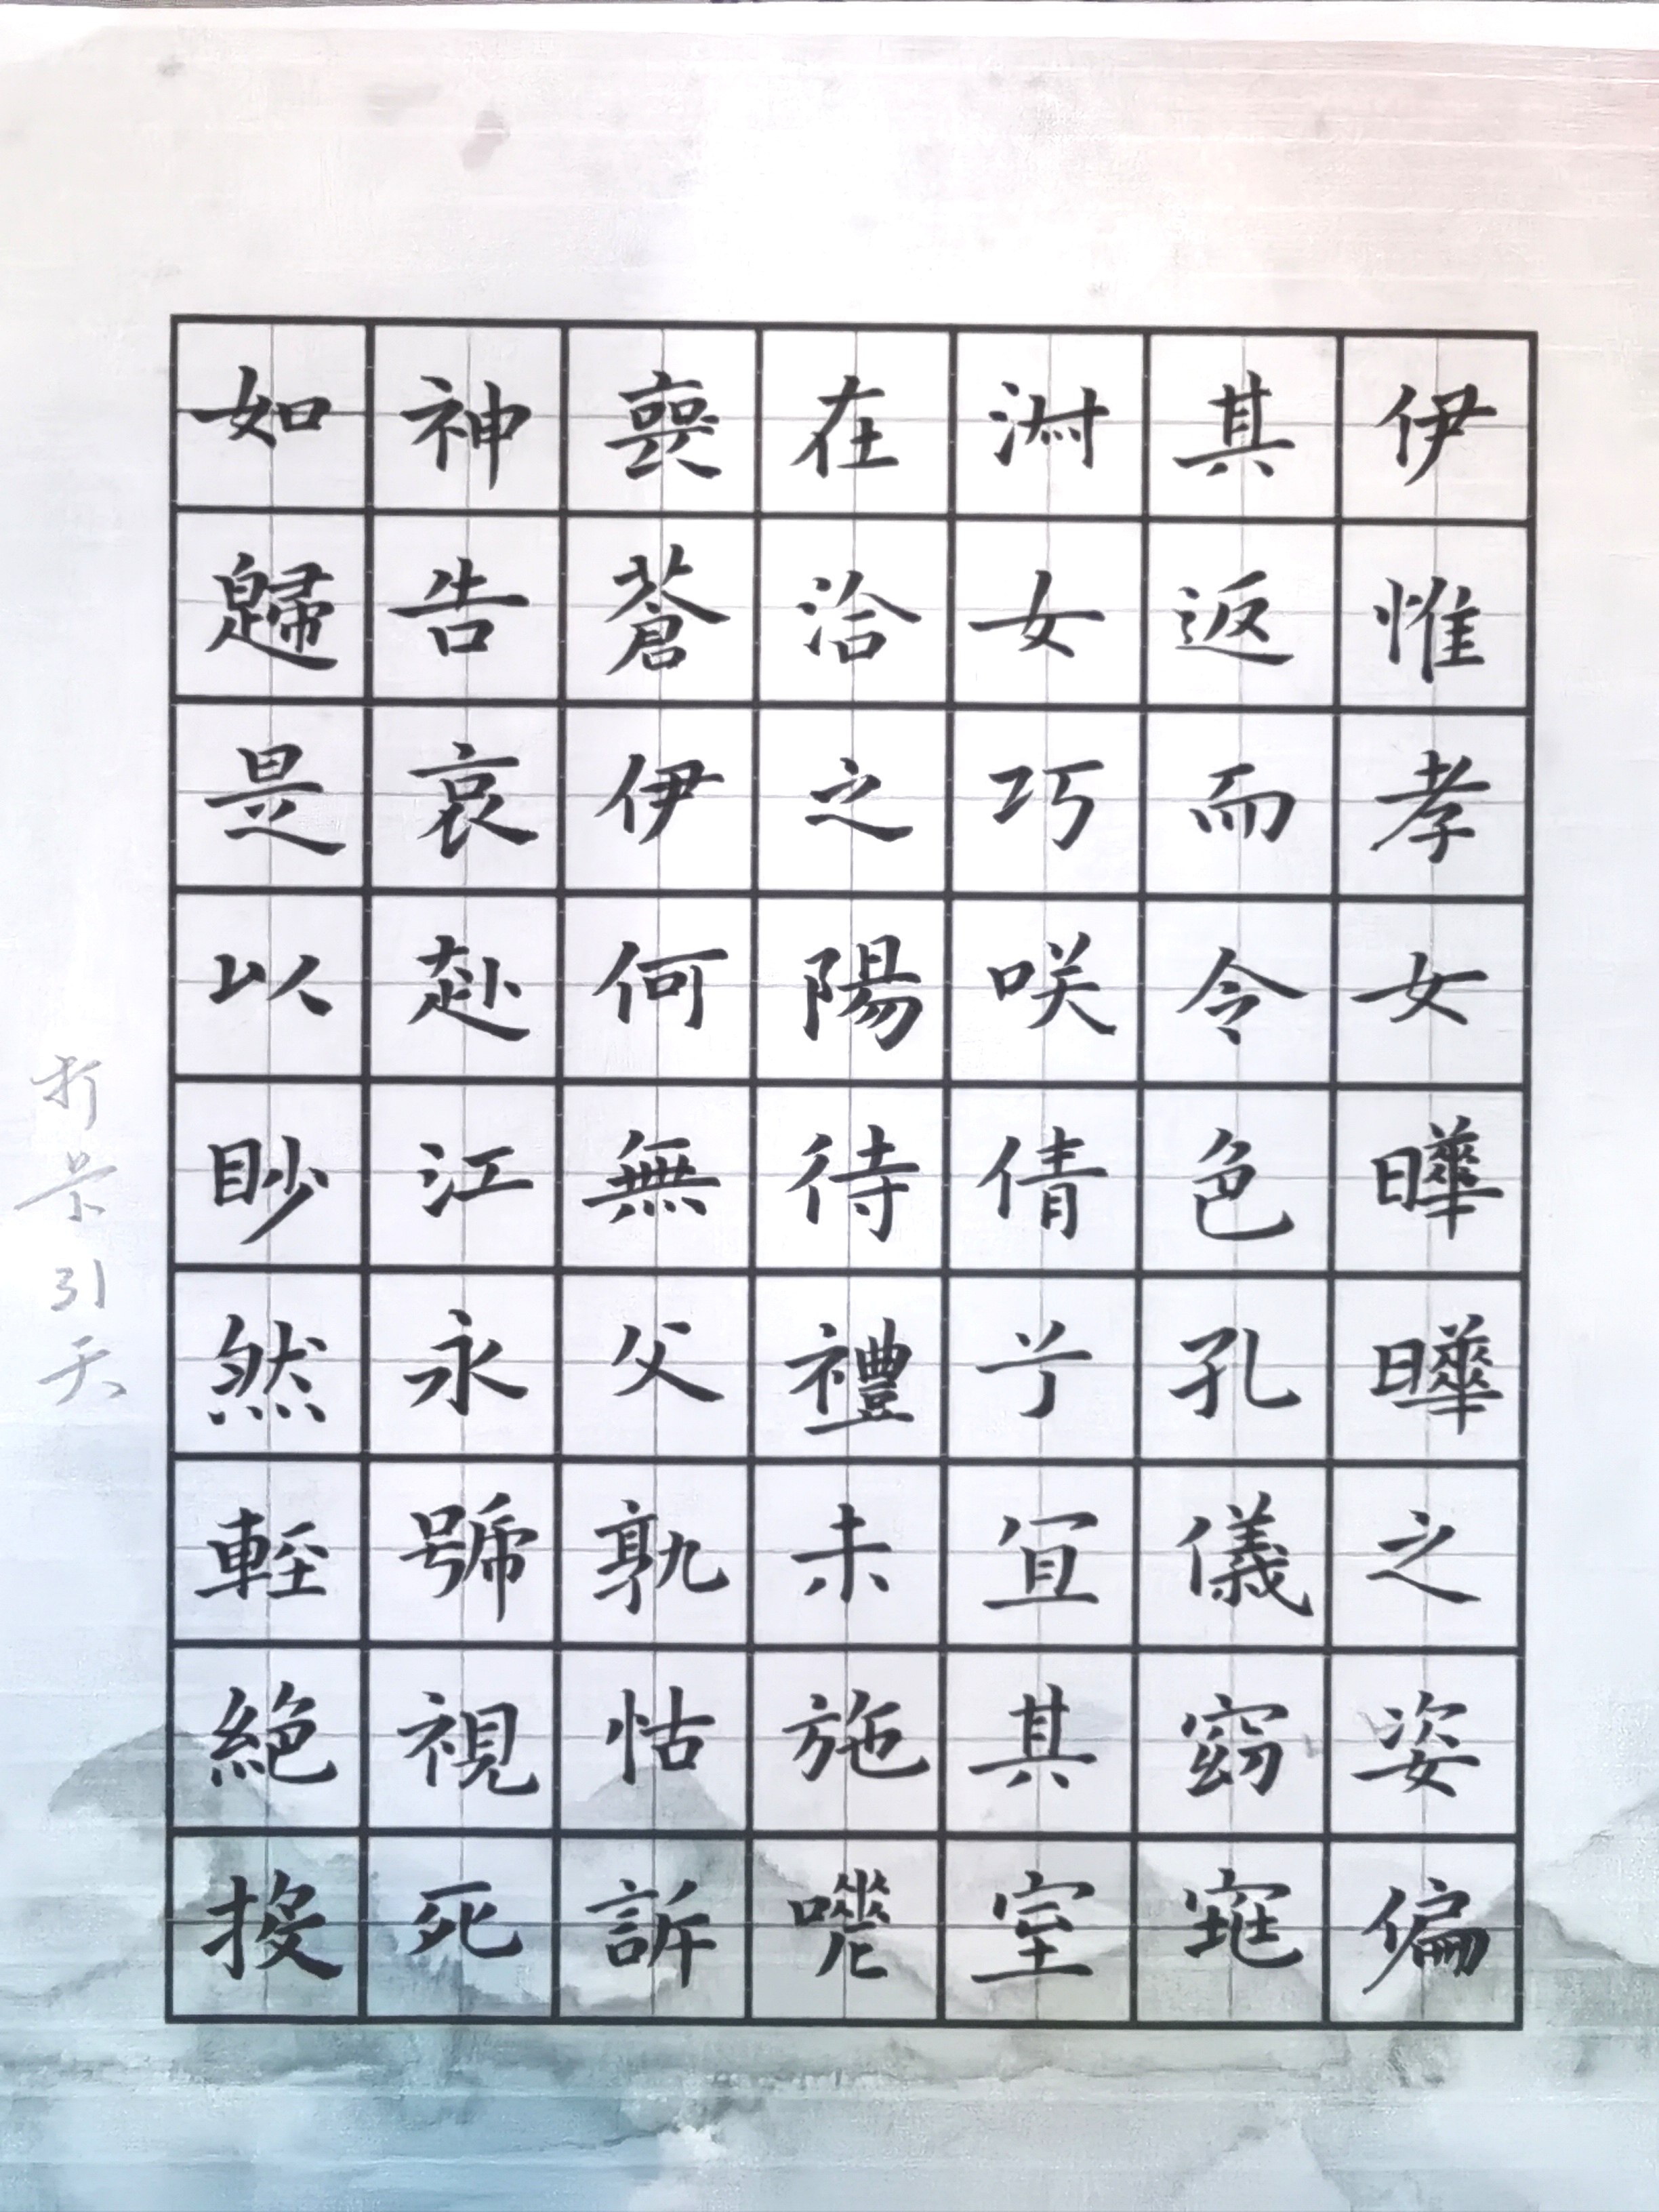 伊惟孝女曄曄之姿偏
其返而令色孔儀窈窕
淑女巧咲倩兮宜其室
在洽之陽待禮未施嗟
喪蒼伊何無父孰怙訴
神告哀赴江永號視死
如歸是以眇然輕絶投